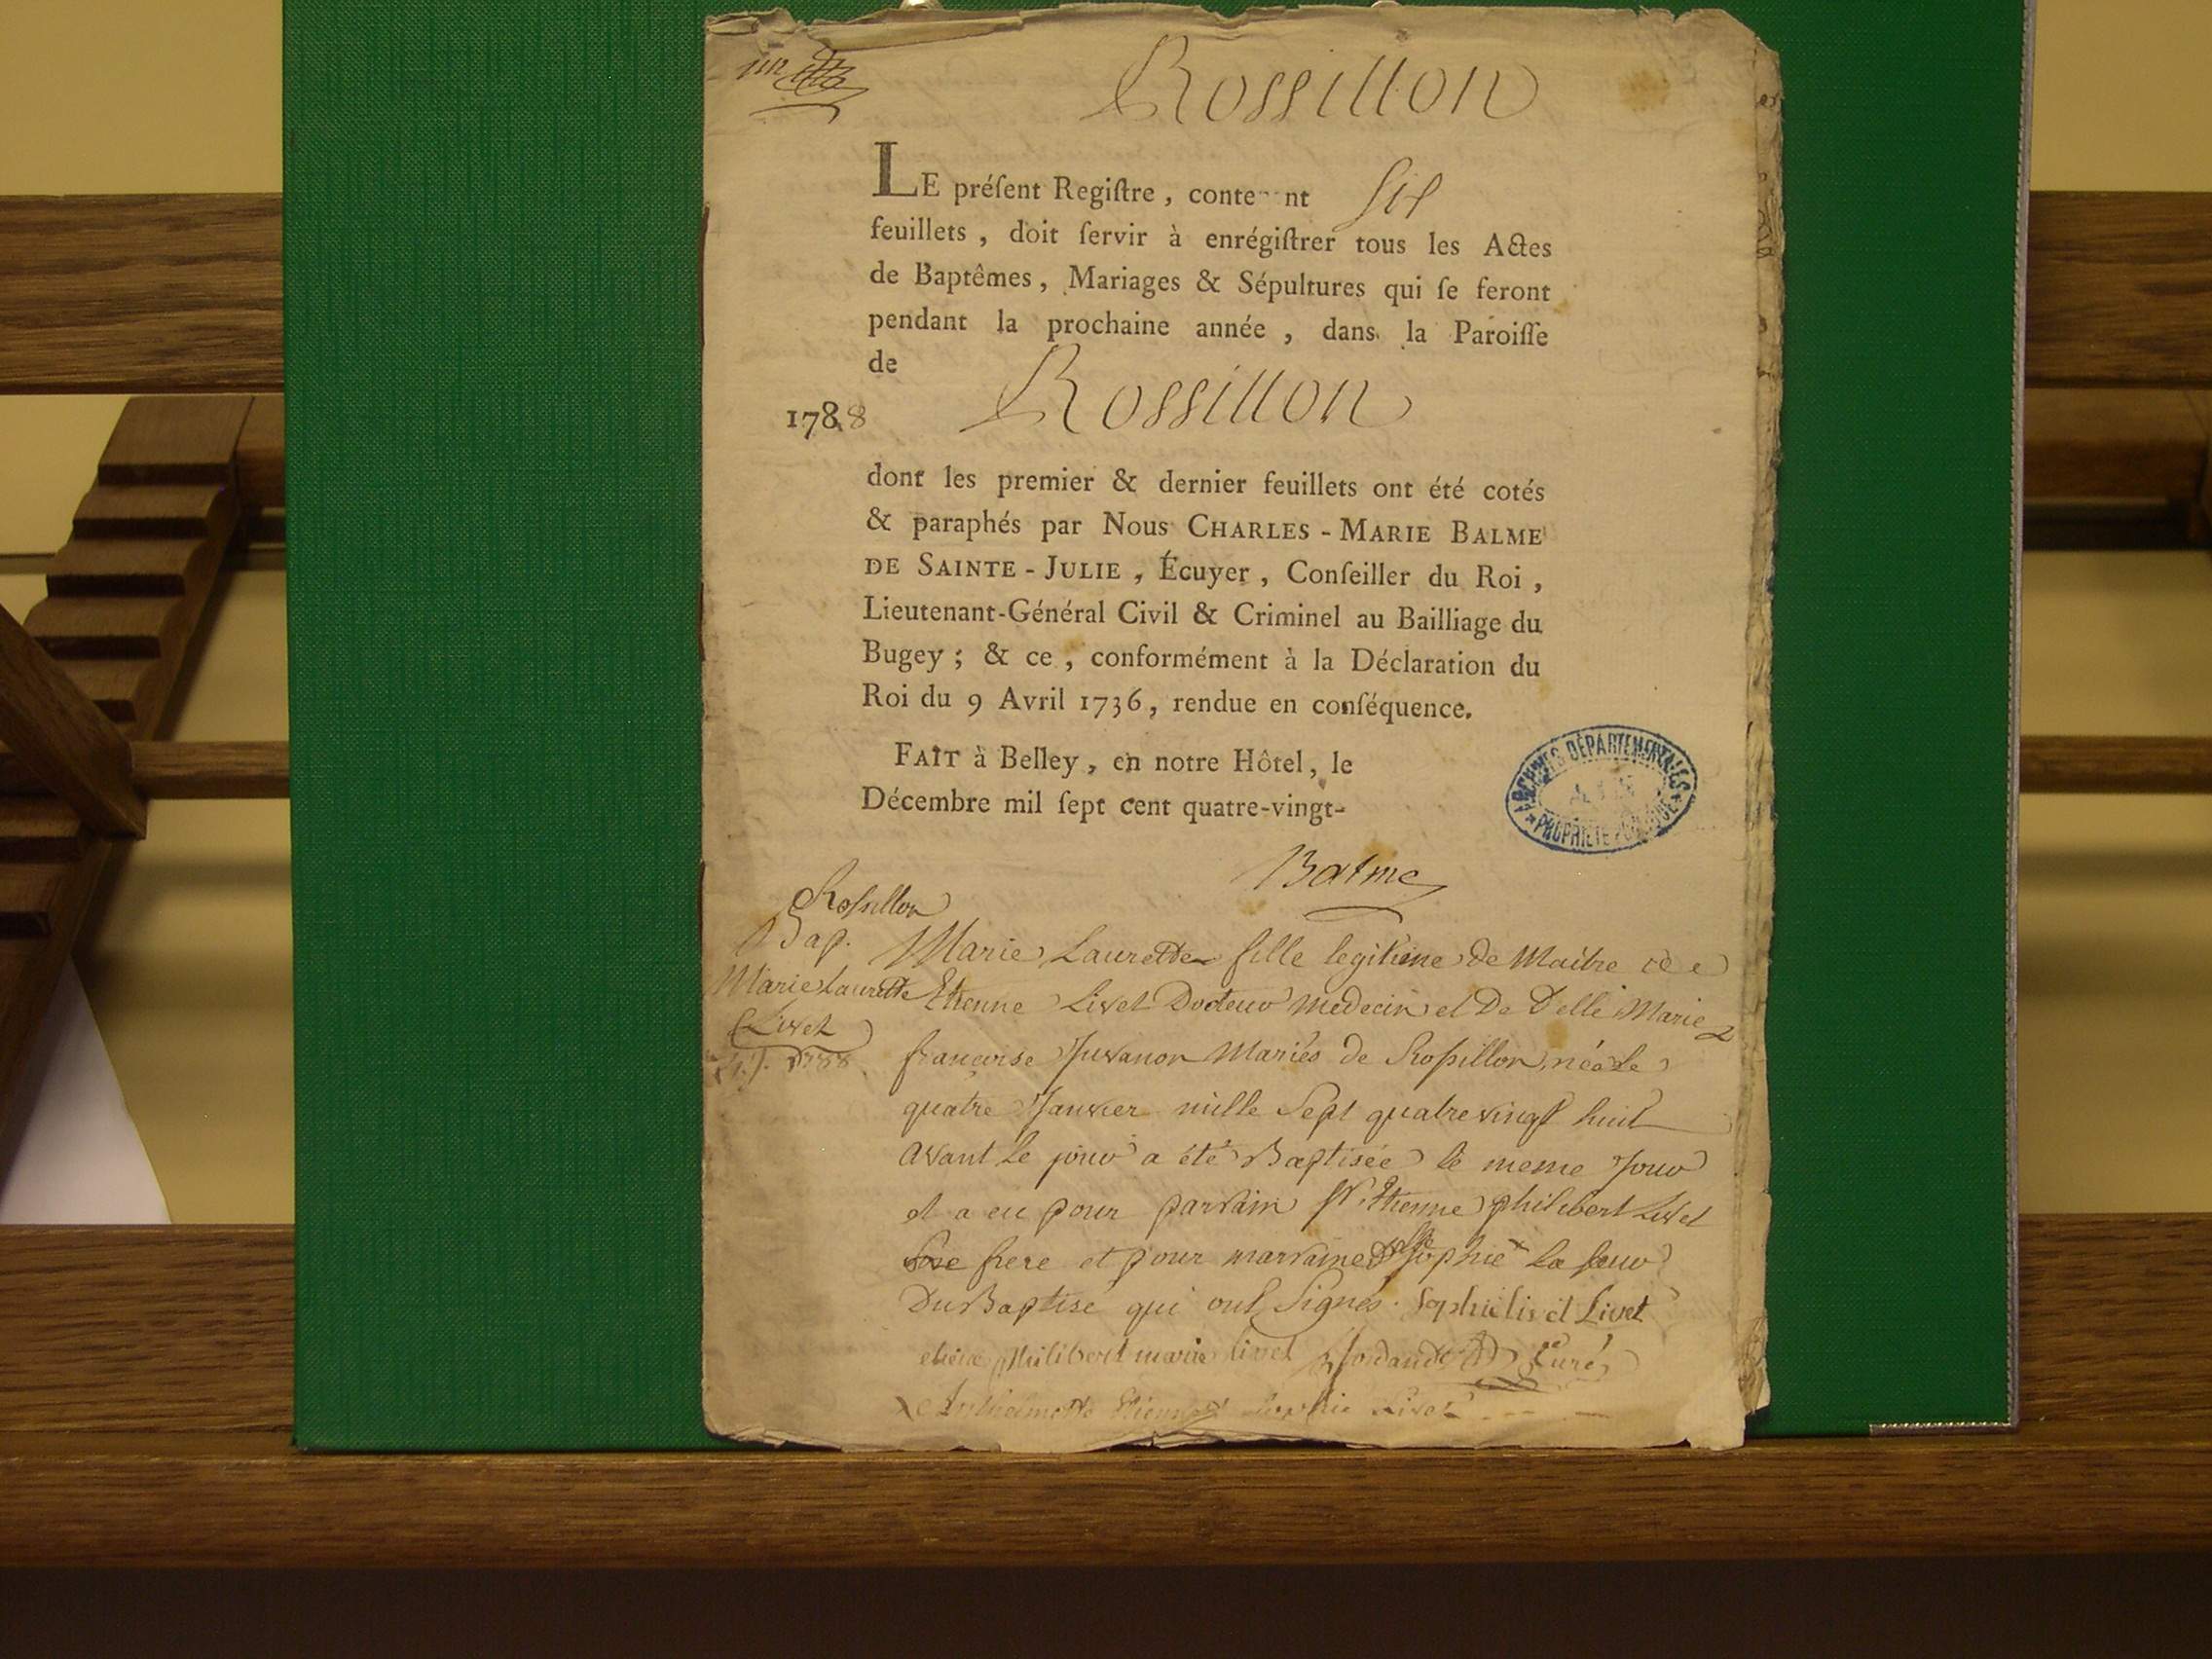 un
Rossillon
LE préſent Regiſtre, conte nt six
feuillets, doit ſervir à enrégiſtrer tous les Actes
de Baptêmes, Mariages & Sépultures qui ſe feront
pendant la prochaine année, dans la Paroiſſe
de
1788 Rossillon
dont les premier & dernier feuillets ont été cotés
& paraphés par Nous CHARLES-MARIE BALME
DE SAINTE-JULIE, Écuyer, Conſeiller du Roi,
Lieutenant-Général Civil & Criminel au Bailliage du
Bugey; & ce, conformément à la Déclaration du
Roi du 9 Avril 1736, rendue en conſéquence.
FAIT à Belley, en notre Hôtel, le
Décembre mil ſept cent quatre-vingt-
ARCHIVES DÉPARTEMENTALES
PROPRIÉTÉ PUBLIQUE
Balme
Rossillon
Bap.
Marie Laurette
Livet
1788
Marie Laurette fille legitime de Maitre
Etienne Livet Docteur Medecin et De Delle Marie
francoise Juvanon Mariés de Rossillon née le
quatre Janvier mille Sept quatre vingt huit
avant le jour a été Baptisée le meme Jour
et a eu pour parrain Sr. Etienne philibert Livet
frere et pour marraine Dlle Sophie la soeur
Du Baptisé qui ont Signés. Sophie livet Livet
philibert marie livet curé
Anthelmette Etiennette Sophie Livet